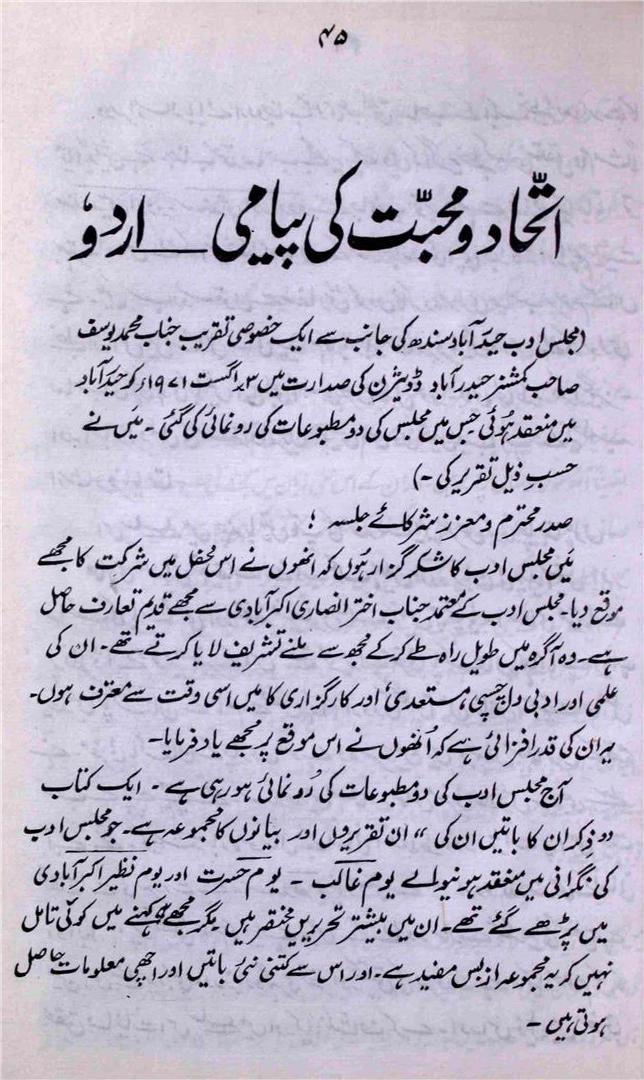 ۴۵
اتّحاد و محبّت کی پیامی ــــ اردو
(مجلس ادب حیدرآباد سندھ کی جانب سے ایک خصوصی تقریب جناب محمد یوسف
صاحب کمشنر حیدرآباد ڈویژن کی صدارت میں ۳؍اگست ۱۹۷۱ء کو حیدرآباد
میں منعقد ہوئی جس میں مجلس کی دو مطبوعات کی رونمائی کی گئی ۔ میں نے
حسبِ ذیل تقریر کی ۔)
صدر محترم و معزز شرکائے جلسہ !
میں مجلس ادب کا شکر گزار ہوں کہ انھوں نے اس محفل میں شرکت کا مجھے
موقع دیا۔ مجلس ادب کے معتمد جناب اختر انصاری اکبرآبادی سے مجھے قدیم تعارف حاصل
ہے۔ وہ آگرہ میں طویل راہ طے کر کے مجھ سے ملنے تشریف لایا کرتے تھے۔ ان کی
علمی اور ادبی دلچسپی مستعدی اور کارگزاری کا میں اسی وقت سے معترف ہوں۔
یہ ان کی قدر افزائی ہے کہ اُنھوں نے اس موقع پر مجھے یاد فرمایا۔
آج مجلس ادب کی دو مطبوعات کی رُونمائی ہو رہی ہے ۔ ایک کتاب
”ذکر ان کا باتیں ان کی“ ان تقریروں اور بیانوں کا مجموعہ ہے۔ جو مجلس ادب
کی نگرانی میں منعقد ہونیوالے یوم غالب – یوم حسرت اور یوم نظیر اکبرآبادی
میں پڑھے گئے تھے۔ ان میں بیشتر تحریریں مختصر ہیں مگر مجھے یہ کہنے میں کوئی تامل
نہیں کہ یہ مجموعہ از بس مفید ہے۔ اور اس سے کتنی نئی باتیں اور اچھی معلومات حاصل
ہوتی ہیں ۔